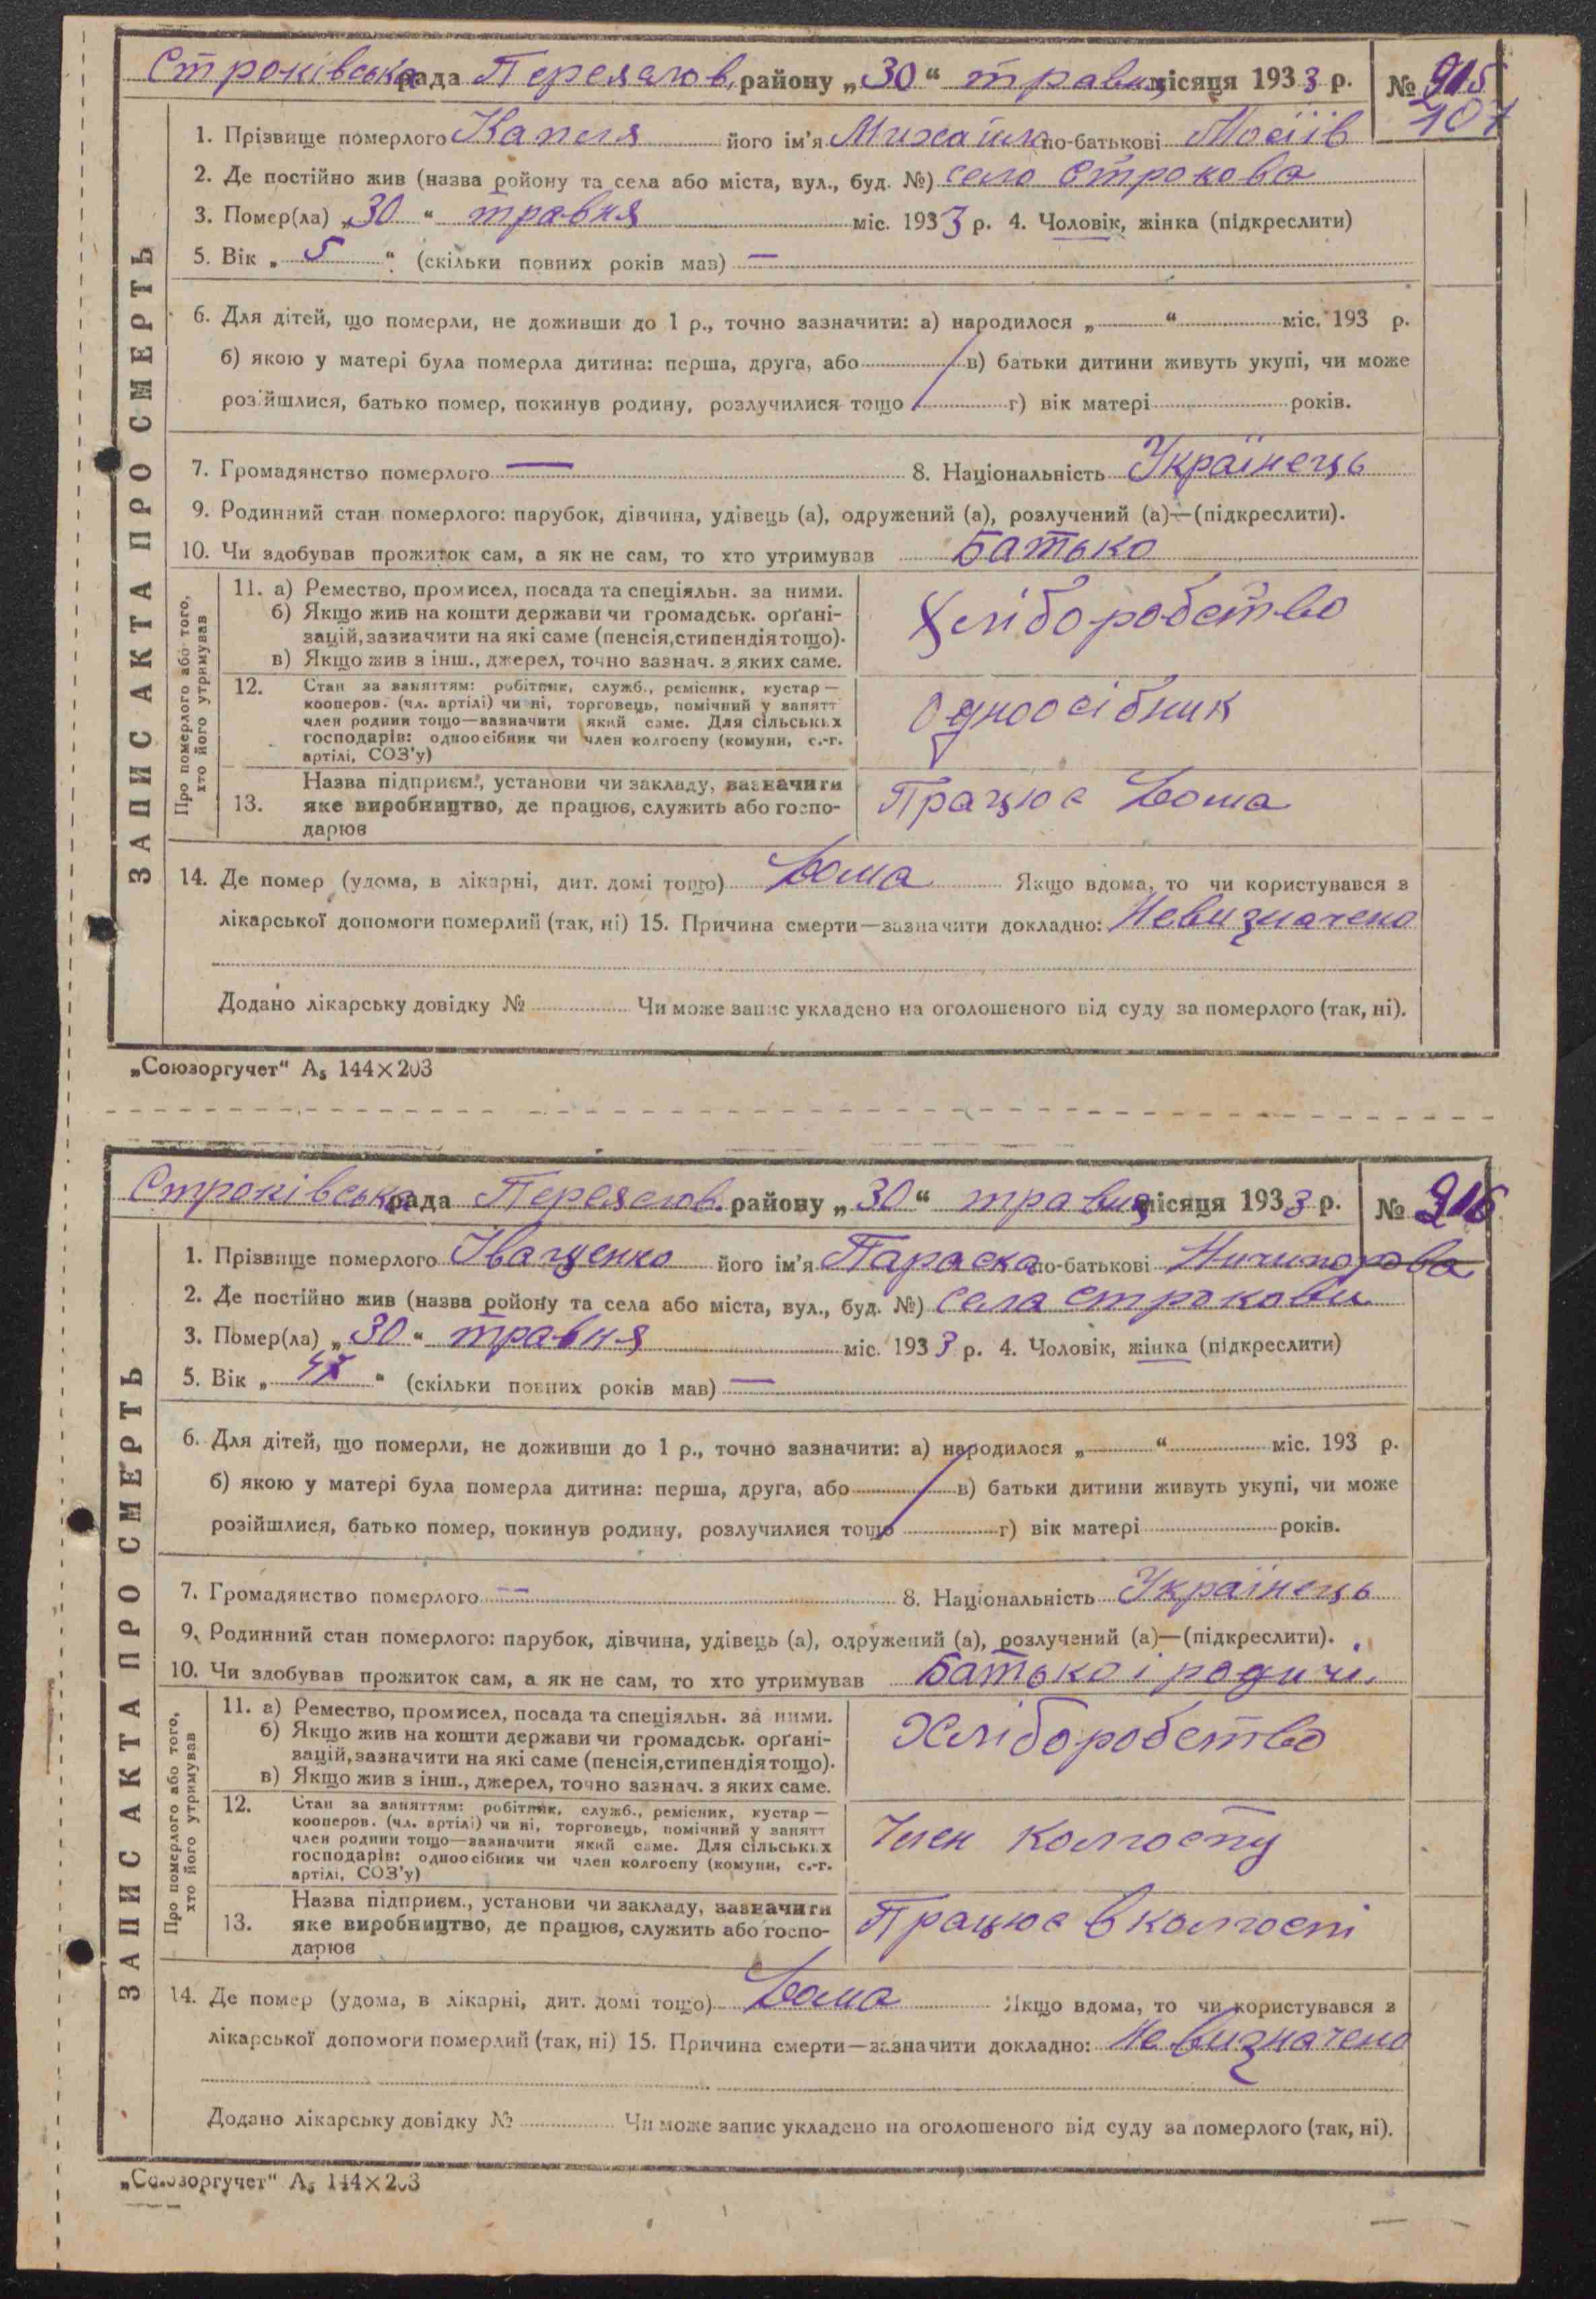 Строківська рада Переяслов. району „30“ травня місяця 1933 р. № 915
107
1. Прізвище померлого Капля його ім'я Михайло по-батькові Мосіїв
2. Де постійно жив (назва ройону та села або міста, вул., буд. №) село Строкова
3. Помер(ла) „30“ травня міс. 1933 р. 4. Чоловік, жінка (підкреслити)
5. Вік „ 5 “ (скільки повних років мав) —
6. Для дітей, що померли, не доживши до 1 р., точно зазначити: а) народилося „ “ міс. 193 р.
б) якою у матері була померла дитина: перша, друга, або в) батьки дитини живуть укупі, чи може
розійшлися, батько помер, покинув родину, розлучилися тощо г) вік матері років.
7. Громадянство померлого — 8. Національність Українець
9. Родинний стан померлого: парубок, дівчина, удівець (а), одружений (а), розлучений (а)—(підкреслити).
10. Чи здобував прожиток сам, а як не сам, то хто утримував Батько
ЗАПИС АКТА ПРО СМЕРТЬ
Про померлого або того,
хто його утримував
11. а) Ремество, промисел, посада та спеціяльн. за ними.
б) Якщо жив на кошти держави чи громадськ. орґані-
зацій, зазначити на які саме (пенсія, стипендія тощо).
в) Якщо жив з інш., джерел, точно зазнач. з яких саме.
Хліборобство
12. Стан за заняттям: робітник, служб., ремісник, кустар—
кооперов. (чл. артілі) чи ні, торговець, помічний у занятт
член родини тощо—зазначити який саме. Для сільських
господарів: одноосібник чи член колгоспу (комуни, с.-г.
артілі, СОЗ'у)
Одноосібник
13. Назва підприєм., установи чи закладу, зазначити
яке виробництво, де працює, служить або госпо-
дарює
Працює Дома
14. Де помер (удома, в лікарні, дит. домі тощо) Дома Якщо вдома, то чи користувався з
лікарської допомоги померлий (так, ні) 15. Причина смерти—зазначити докладно: Невизначено
Додано лікарську довідку № Чи може запис укладено на оголошеного від суду за померлого (так, ні).
„Союзоргучет“ А₅ 144×203
Строківська рада Переяслов. району „30“ травня місяця 1933 р. № 916
1. Прізвище померлого Іващенко його ім'я Параска по-батькові Ничипорова
2. Де постійно жив (назва ройону та села або міста, вул., буд. №) села Строкови
3. Помер(ла) „30“ травня міс. 1933 р. 4. Чоловік, жінка (підкреслити)
5. Вік „ “ (скільки повних років мав) —
6. Для дітей, що померли, не доживши до 1 р., точно зазначити: а) народилося „ “ міс. 193 р.
б) якою у матері була померла дитина: перша, друга, або в) батьки дитини живуть укупі, чи може
розійшлися, батько помер, покинув родину, розлучилися тощо г) вік матері років.
7. Громадянство померлого — 8. Національність Українець
9. Родинний стан померлого: парубок, дівчина, удівець (а), одружений (а), розлучений (а)—(підкреслити).
10. Чи здобував прожиток сам, а як не сам, то хто утримував Батько і родичі.
ЗАПИС АКТА ПРО СМЕРТЬ
Про померлого або того,
хто його утримував
11. а) Ремество, промисел, посада та спеціяльн. за ними.
б) Якщо жив на кошти держави чи громадськ. орґані-
зацій, зазначити на які саме (пенсія, стипендія тощо).
в) Якщо жив з інш., джерел, точно зазнач. з яких саме.
Хліборобство
12. Стан за заняттям: робітник, служб., ремісник, кустар—
кооперов. (чл. артілі) чи ні, торговець, помічний у занятт
член родини тощо—зазначити який саме. Для сільських
господарів: одноосібник чи член колгоспу (комуни, с.-г.
артілі, СОЗ'у)
Член колгоспу
13. Назва підприєм., установи чи закладу, зазначити
яке виробництво, де працює, служить або госпо-
дарює
Працює в колгоспі
14. Де помер (удома, в лікарні, дит. домі тощо) Дома Якщо вдома, то чи користувався з
лікарської допомоги померлий (так, ні) 15. Причина смерти—зазначити докладно: Не визначено
Додано лікарську довідку № Чи може запис укладено на оголошеного від суду за померлого (так, ні).
„Союзоргучет“ А₅ 144×203